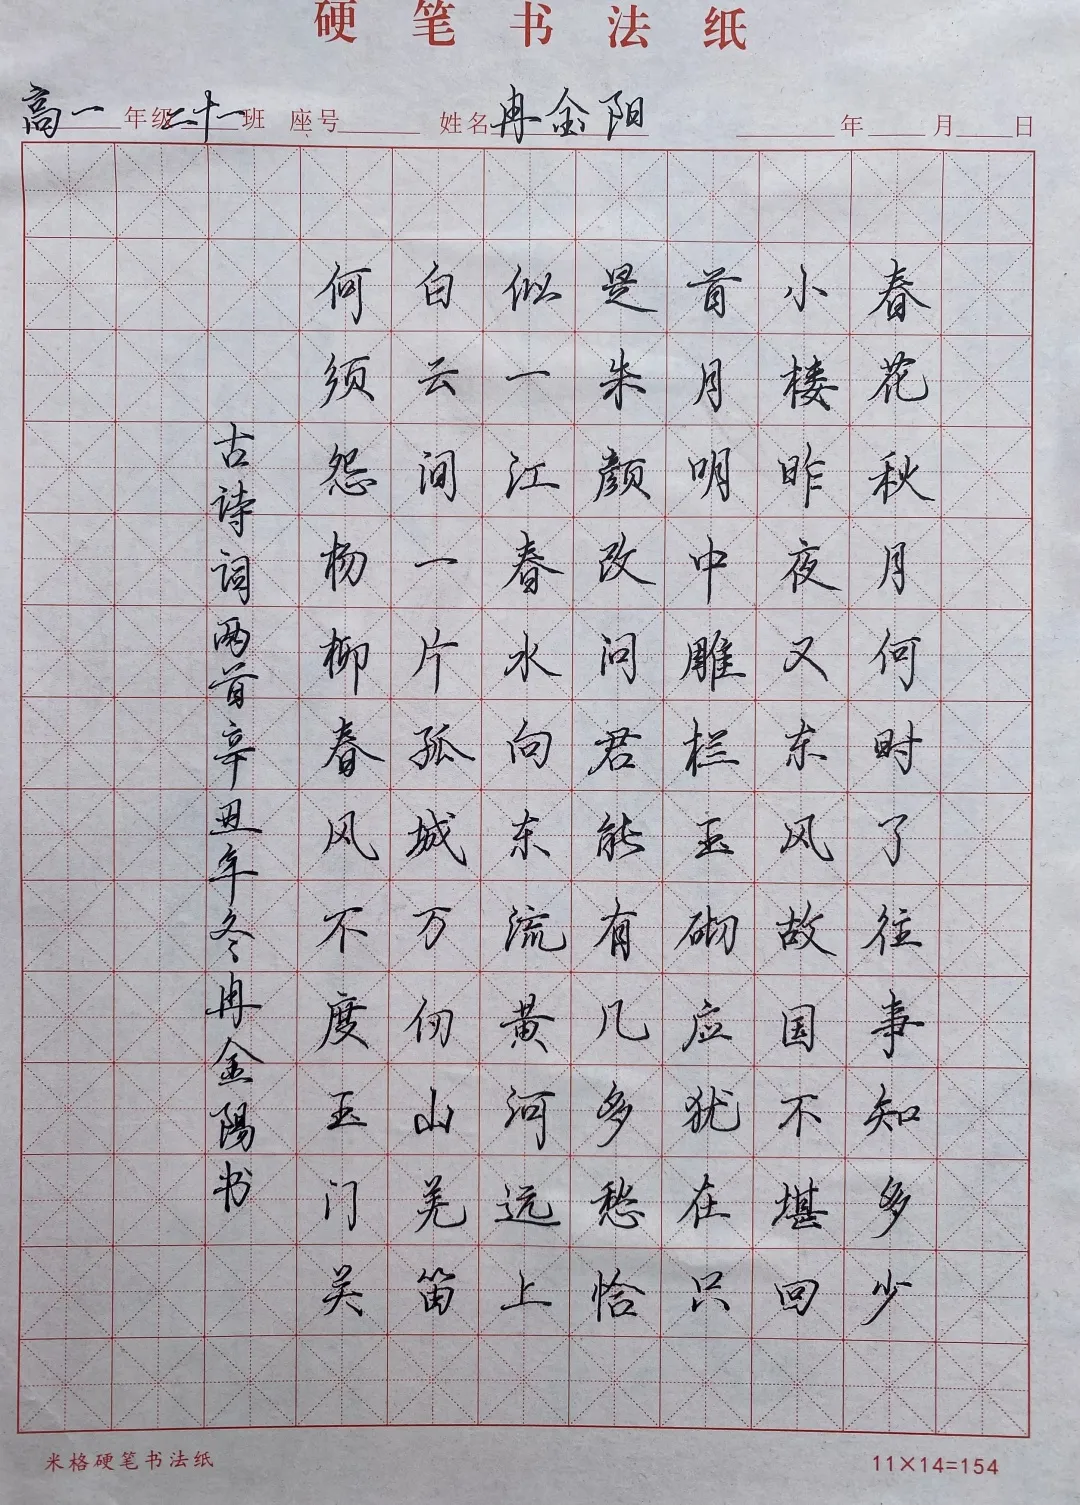 硬笔书法纸
高一年级二十一班 座号 姓名冉金阳 年 月 日
春花秋月何时了往事知多少
小楼昨夜又东风故国不堪回
首月明中雕栏玉砌应犹在只
是朱颜改问君能有几多愁恰
似一江春水向东流黄河远上
白云间一片孤城万仞山羌笛
何须怨杨柳春风不度玉门关
古诗词两首辛丑年冬冉金陽书
米格硬笔书法纸
11×14=154